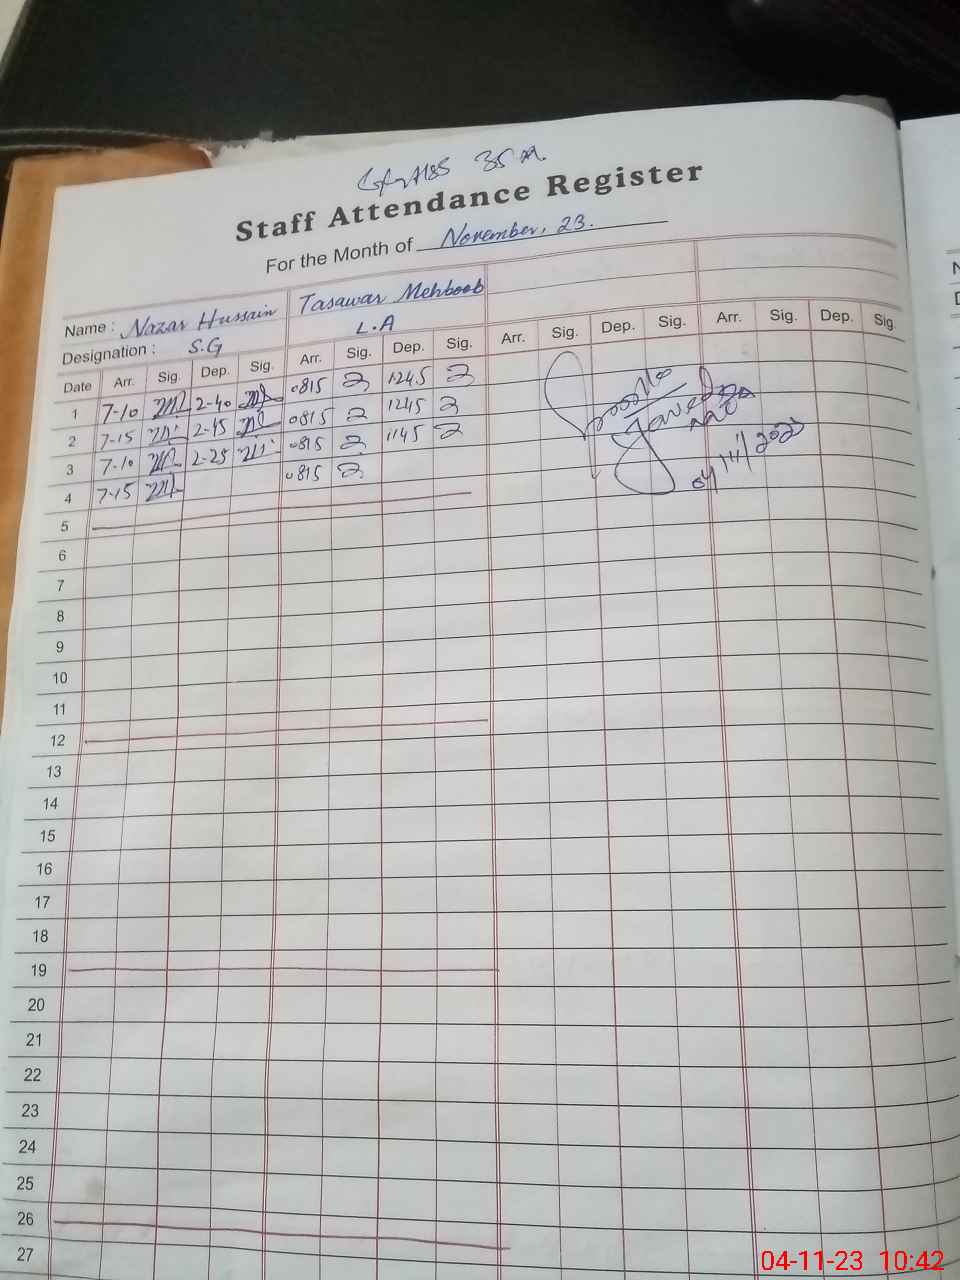 35 M.
Staff Attendance Register
For the Month of November, 23.
Name : Nazar Hussain Tasawar Mehboob
Designation : S.G L.A
Date Arr. Sig. Dep. Sig. Arr. Sig. Dep. Sig. Arr. Sig. Dep. Sig. Arr. Sig. Dep. Sig.
1 7-10 2-40 0815 1245
2 7-15 2-45 0815 1245
3 7-10 2-25 0815 1145
4 7-15 0815
5
6
7
8
9
10
11
12
13
14
15
16
17
18
19
20
21
22
23
24
25
26
27
04-11-23 10:42